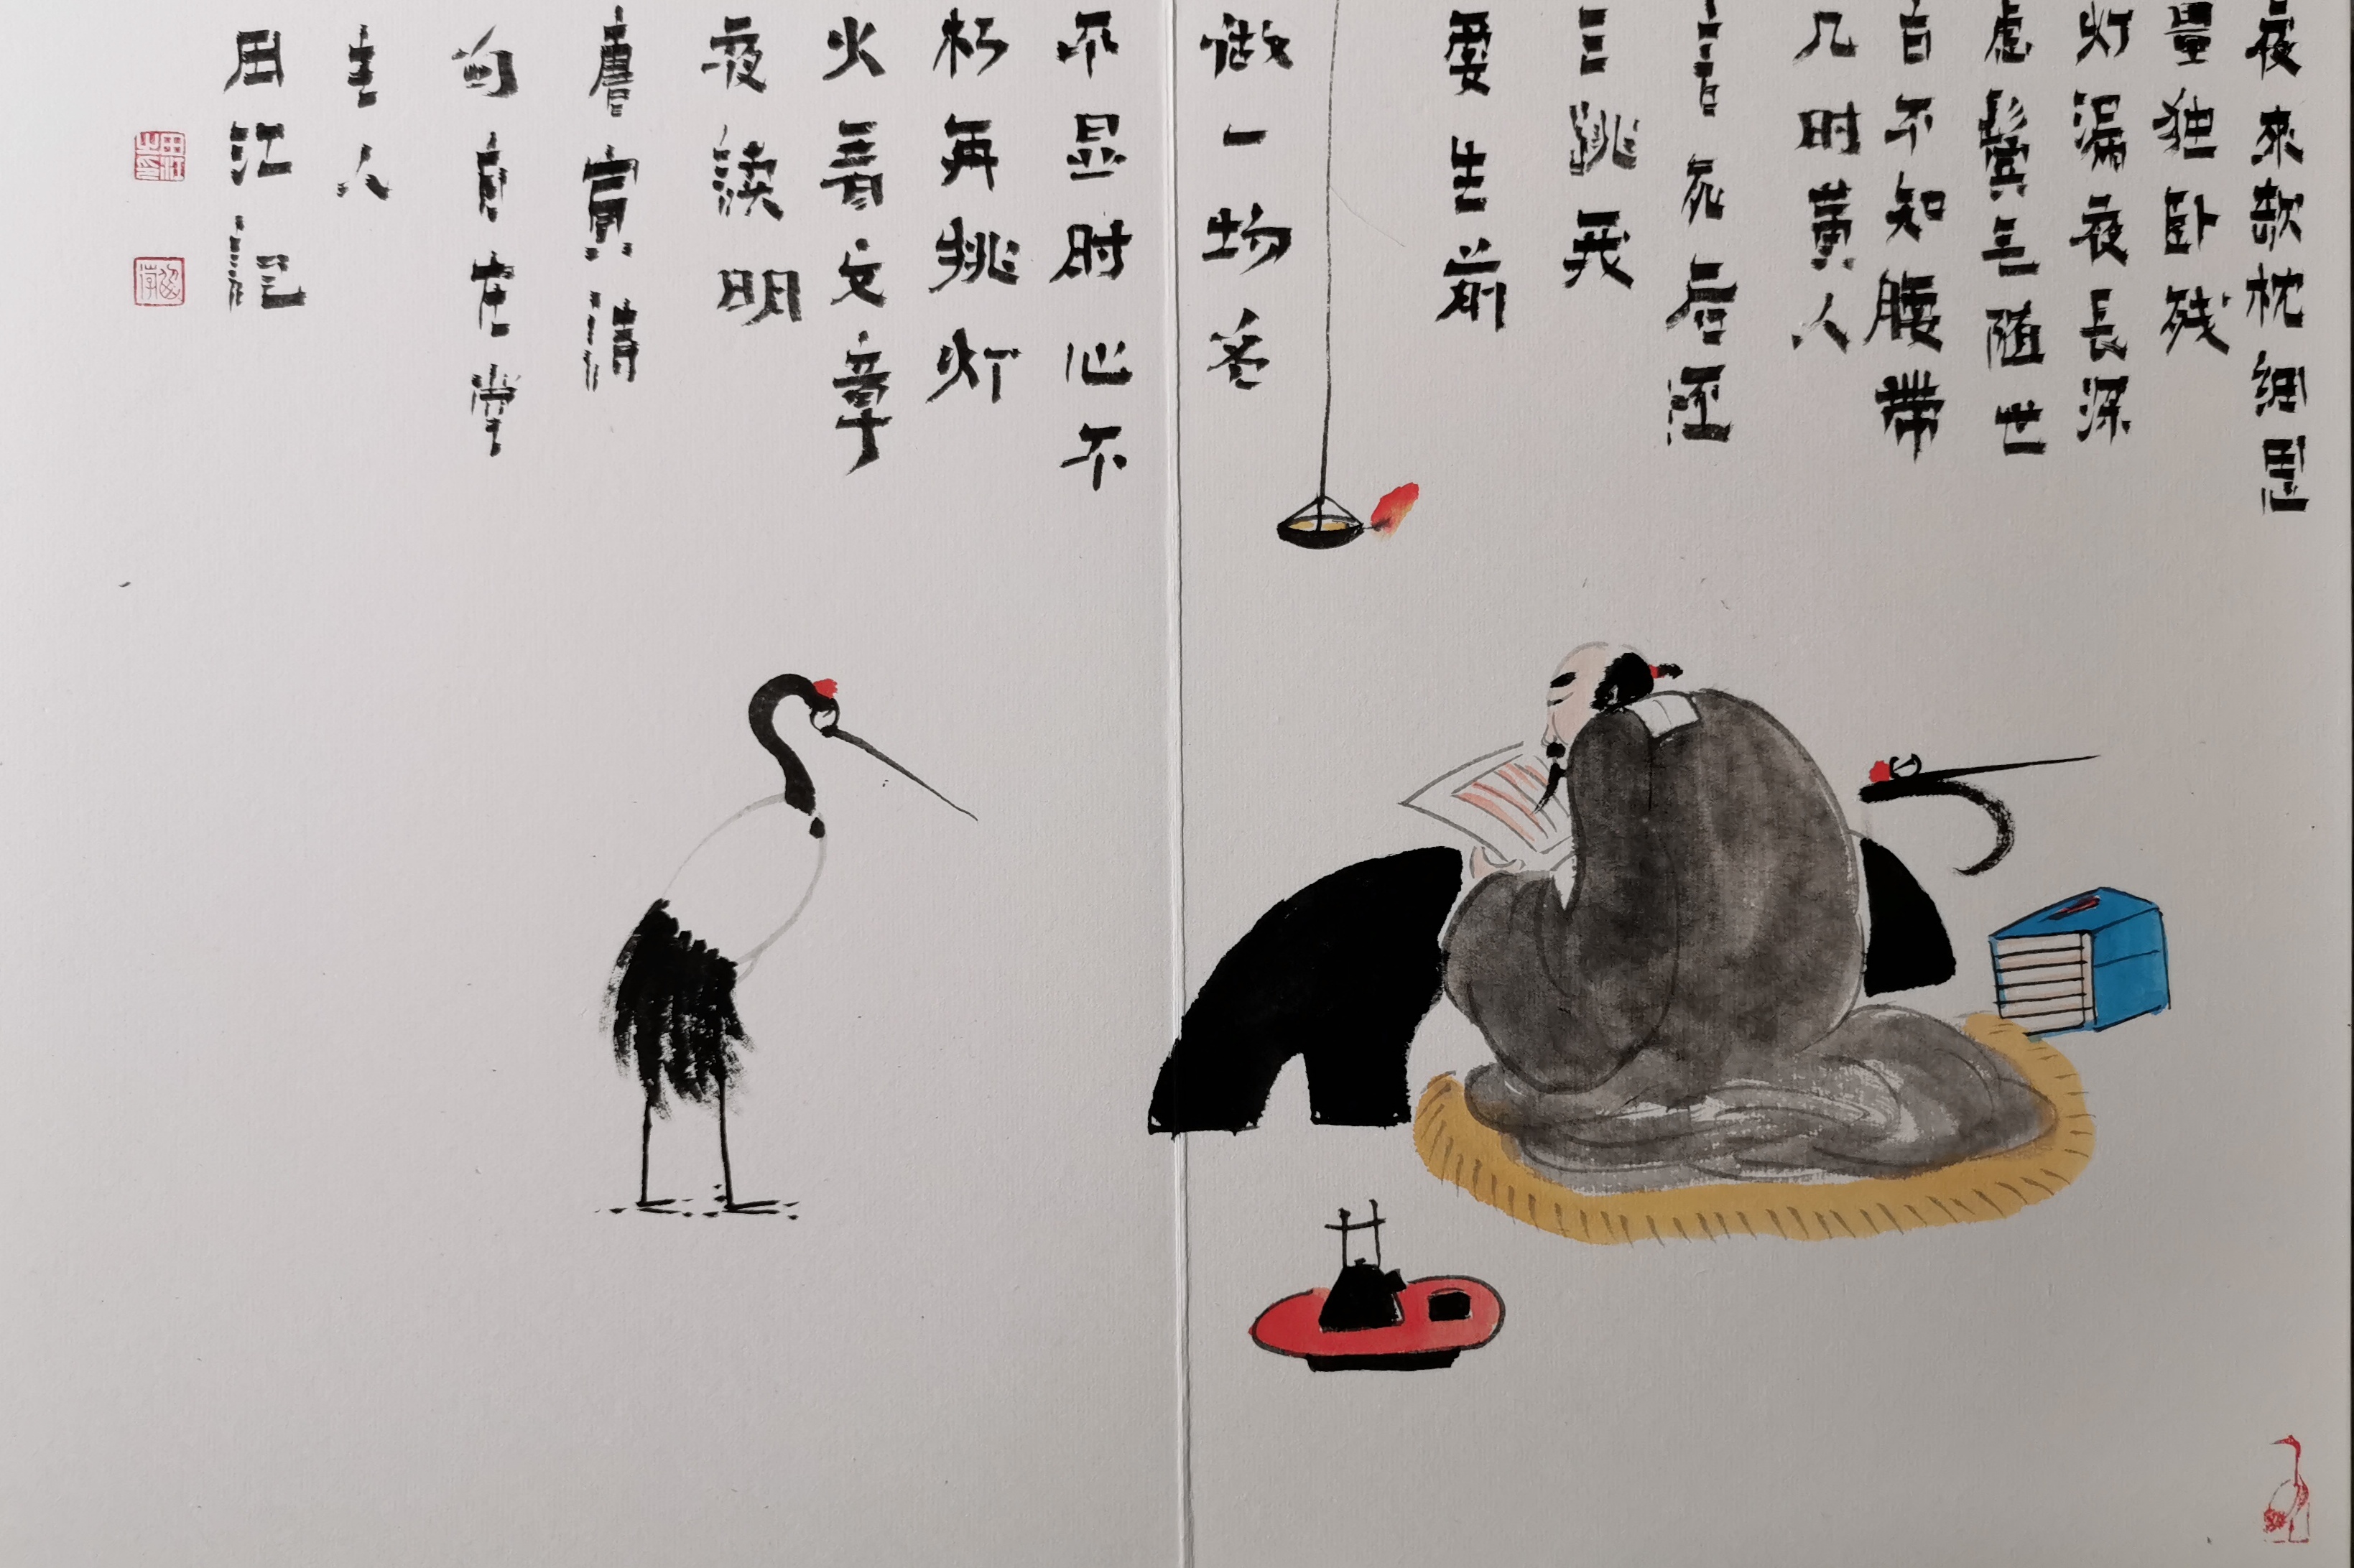 夜來欹枕细思
量独卧残
灯漏夜長深
虑鬓毛随世
白不知腰帶
几时黄人
言死后还
三跳我
要生前
做一场名
不显时心不
朽再挑灯
火看文章
夜读明
唐寅诗
句自在堂
主人
田江記
田江之印